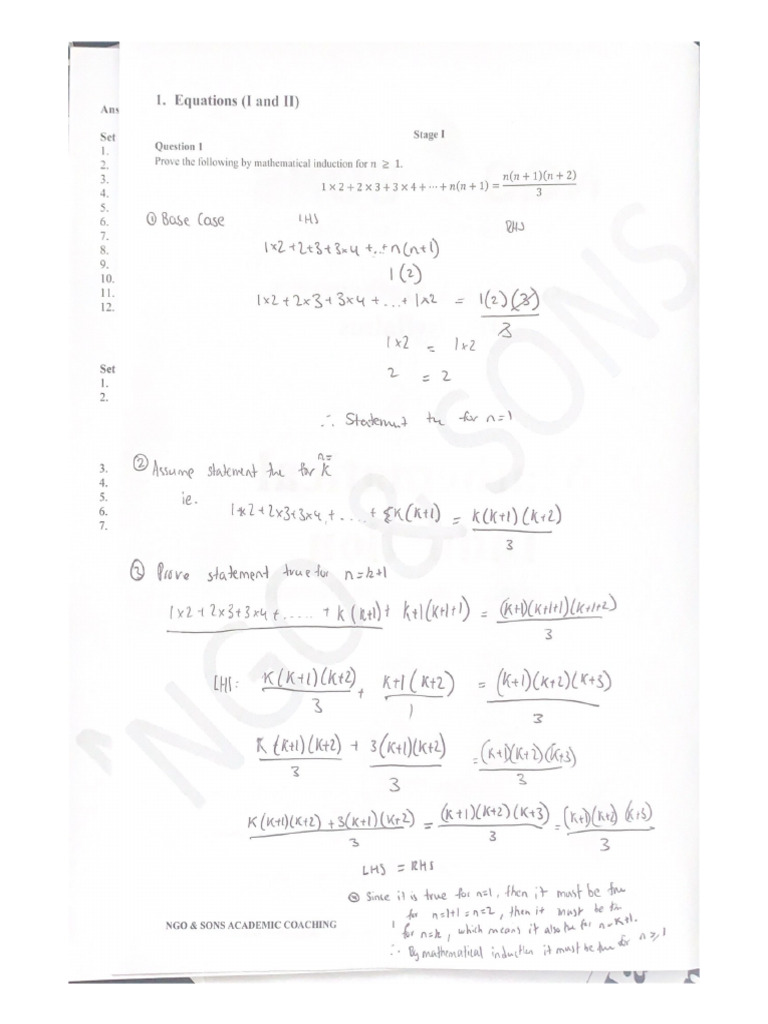 Ans
Set
1.
2.
3.
4.
5.
6.
7.
8.
9.
10.
11.
12.
Set
1.
2.
3.
4.
5.
6.
7.
1. Equations (I and II)
Stage I
Question 1
Prove the following by mathematical induction for n ≥ 1.
1 × 2 + 2 × 3 + 3 × 4 + ⋯ + n(n + 1) = n(n + 1)(n + 2) / 3
① Base Case LHS RHS
1×2+2+3+3×4+...+n(n+1)
1(2)
1×2+2×3+3×4+...+1×2 = 1(2)(3) / 3
1×2 = 1×2
2 = 2
∴ Statement true for n=1
② Assume statement true for n=k
ie. 1×2+2×3+3×4+.....+k(k+1) = k(k+1)(k+2) / 3
③ Prove statement true for n=k+1
1×2+2×3+3×4+.....+k(k+1)+k+1(k+1+1) = (k+1)(k+1+1)(k+1+2) / 3
LHS: k(k+1)(k+2) / 3 + k+1(k+2) / 1 = (k+1)(k+2)(k+3) / 3
k(k+1)(k+2) / 3 + 3(k+1)(k+2) / 3 = (k+1)(k+2)(k+3) / 3
k(k+1)(k+2)+3(k+1)(k+2) / 3 = (k+1)(k+2)(k+3) / 3 = (k+1)(k+2)(k+3) / 3
LHS = RHS
④ Since it is true for n=1, then it must be true
for n=1+1=n=2, then it must be true
for n=k, which means it also true for n=k+1.
∴ By mathematical induction it must be true for n≥1
NGO & SONS ACADEMIC COACHING
NGO & SONS